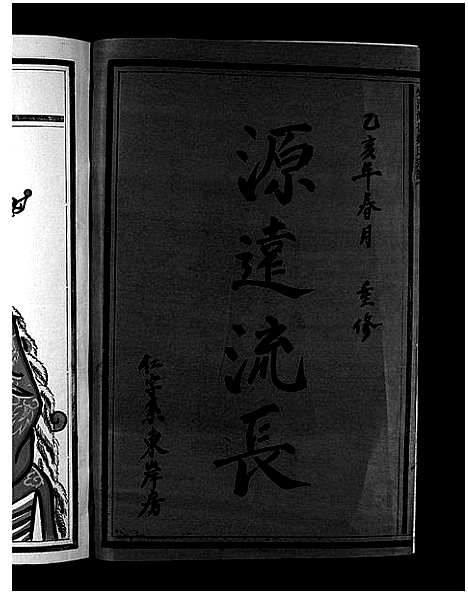 乙亥年春月 重修
源遠流長
仁宇系東岸房